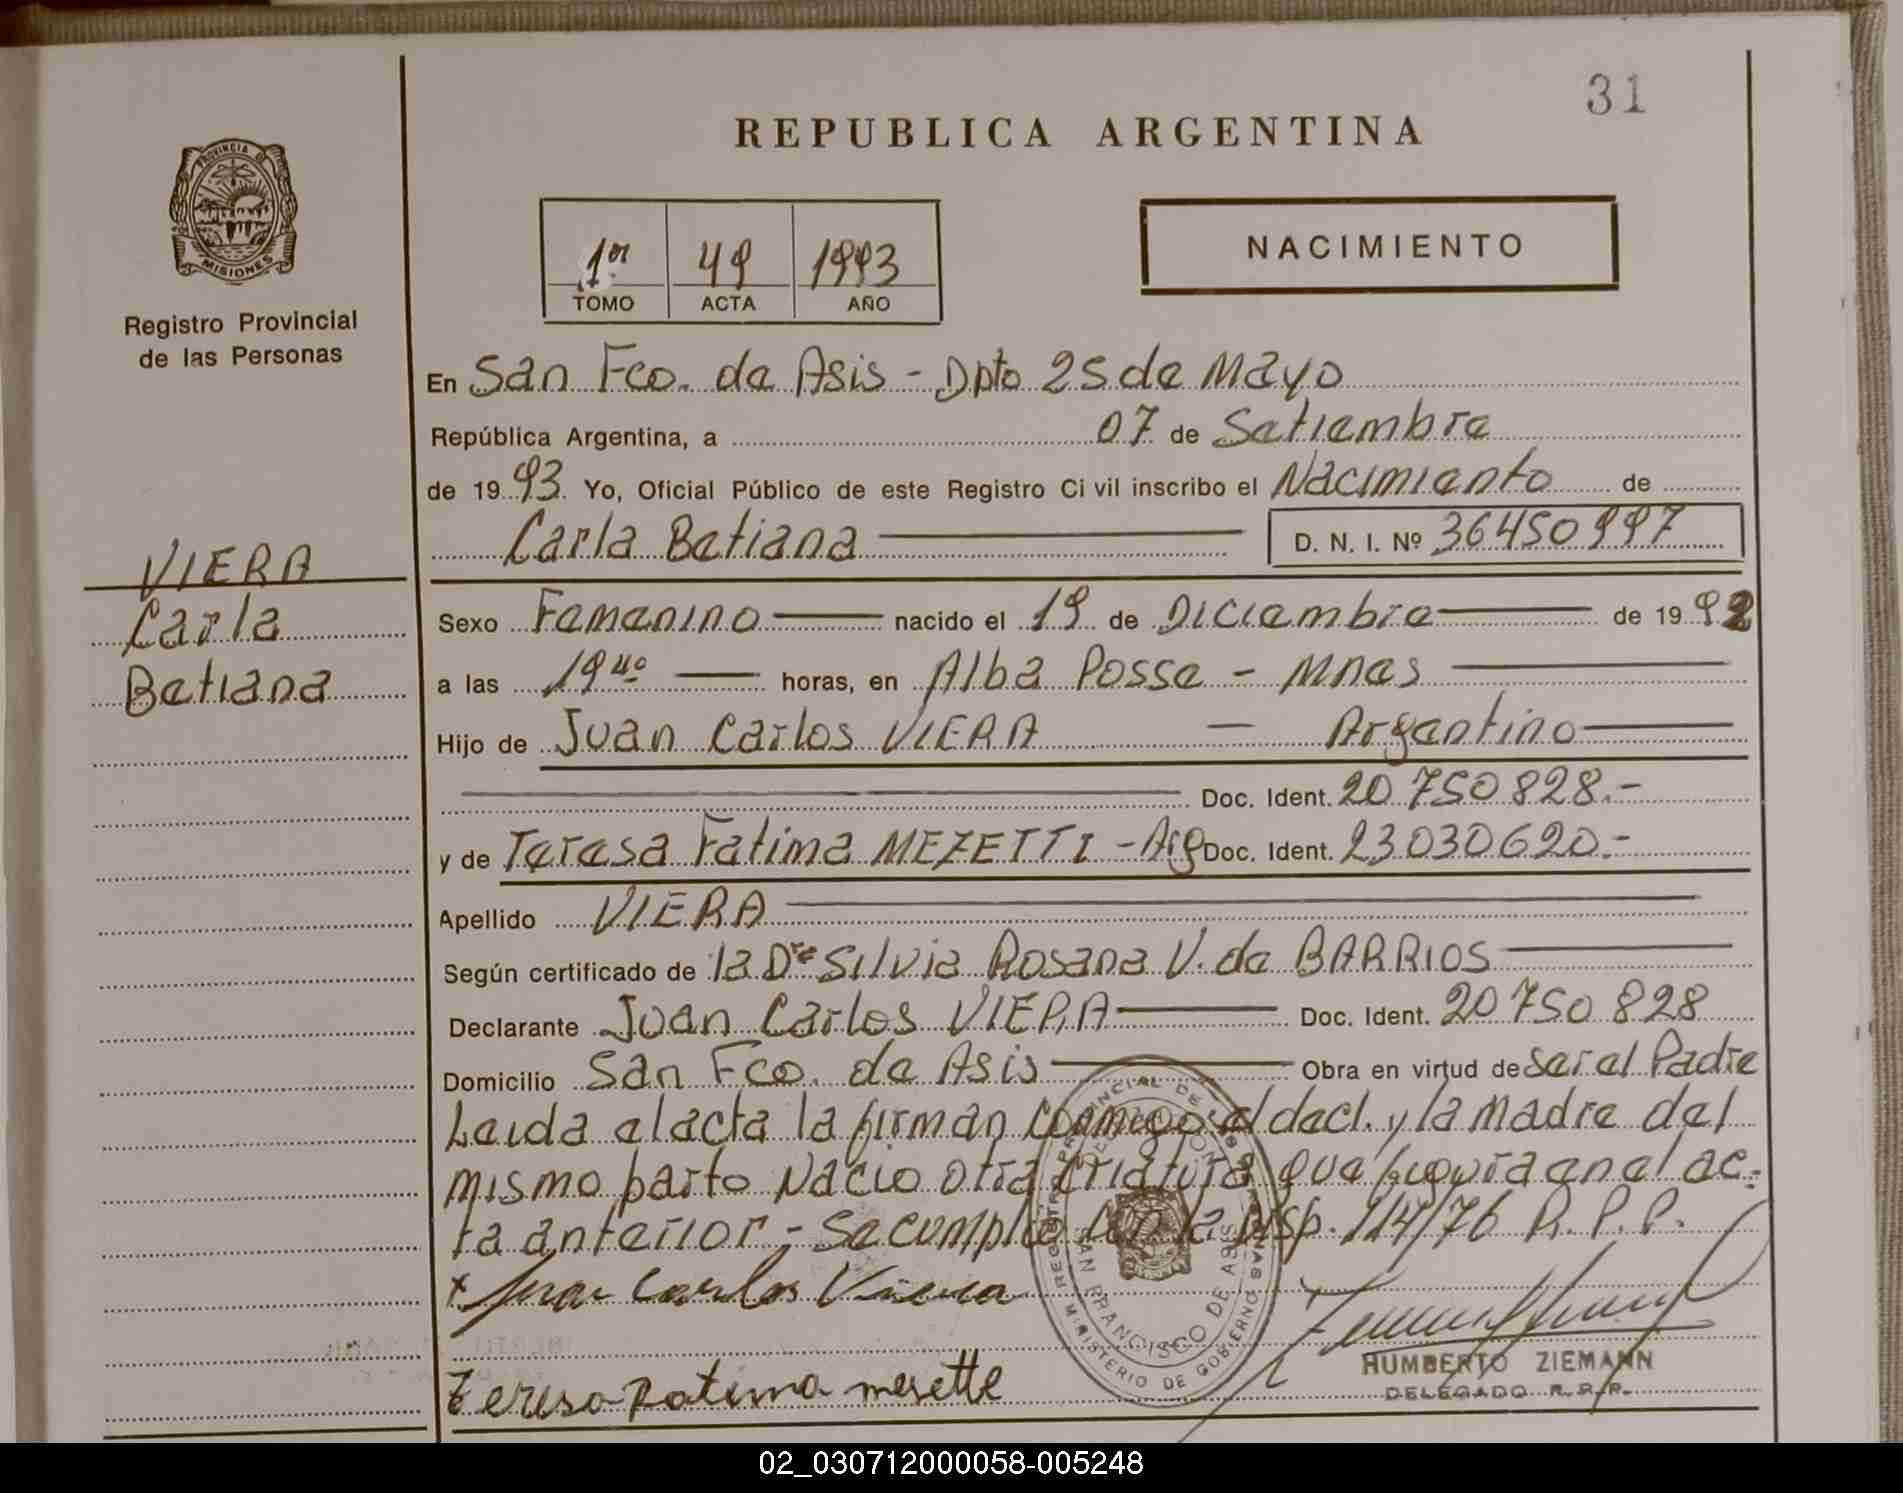 31
REPUBLICA ARGENTINA
PROVINCIA DE
MISIONES
Registro Provincial
de las Personas
1er 49 1993
TOMO ACTA AÑO
NACIMIENTO
En San Fco. de Asis - Dpto 25 de Mayo
República Argentina, a 07 de Setiembre
de 19 93. Yo, Oficial Público de este Registro Civil inscribo el Nacimiento de
Carla Betiana D. N. I. Nº 36450997
VIERA
Carla
Betiana
Sexo Femenino nacido el 19 de Diciembre de 19 92
a las 19 40 horas, en Alba Posse - Mnes
Hijo de Juan Carlos VIERA - Argentino
Doc. Ident. 20 750 828.-
y de Teresa Fatima MEZETTI - Arg Doc. Ident. 23030620.-
Apellido VIERA
Según certificado de la Dra Silvia Rosana V. de BARRIOS
Declarante Juan Carlos VIERA Doc. Ident. 20 750 828
Domicilio San Fco. de Asis Obra en virtud de ser el Padre
Leida el acta la firman conmigo el decl. y la madre del
mismo parto Nacio otra criatura que figura en el ac-
ta anterior - Se cumple con la Disp. 114/76 R. P. P.
x Juan Carlos Viera
REGISTRO PROVINCIAL DE LAS PERSONAS
DELEGACION
SAN FRANCISCO DE ASIS
MINISTERIO DE GOBIERNO
HUMBERTO ZIEMANN
DELEGADO R.P.P.
Teresa Fatima mesette
02_030712000058-005248